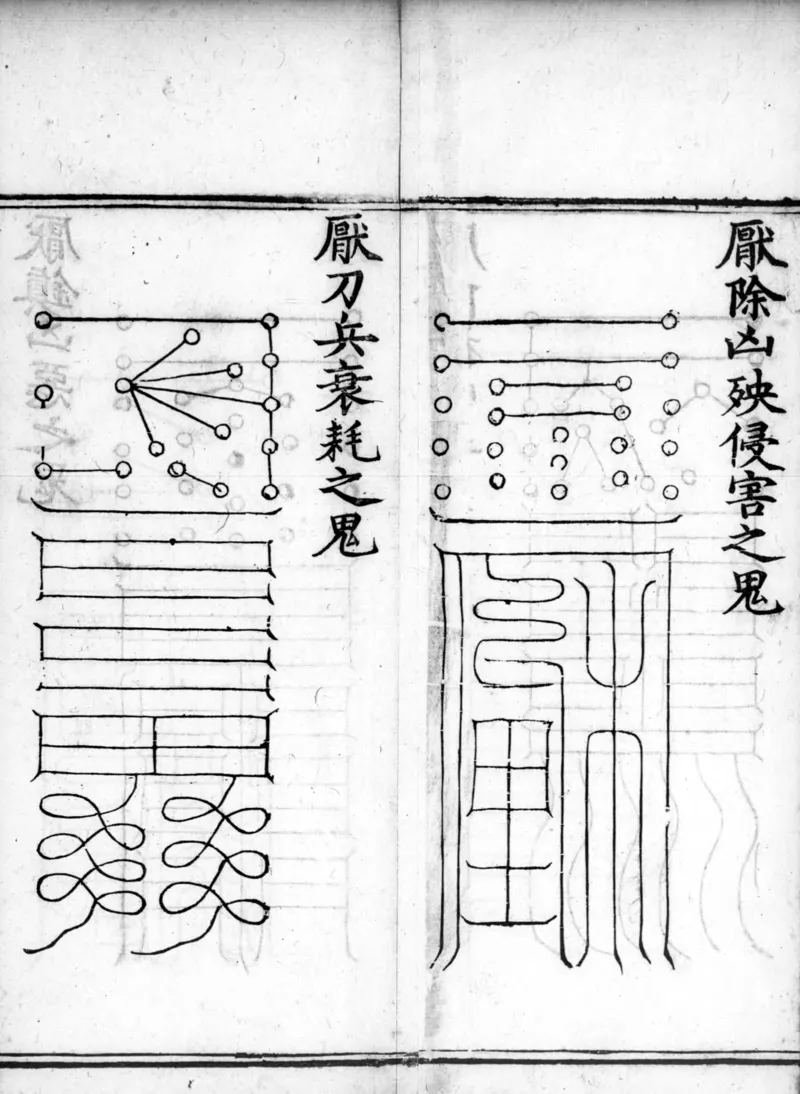 厭除凶殃侵害之鬼
厭刀兵衰耗之鬼